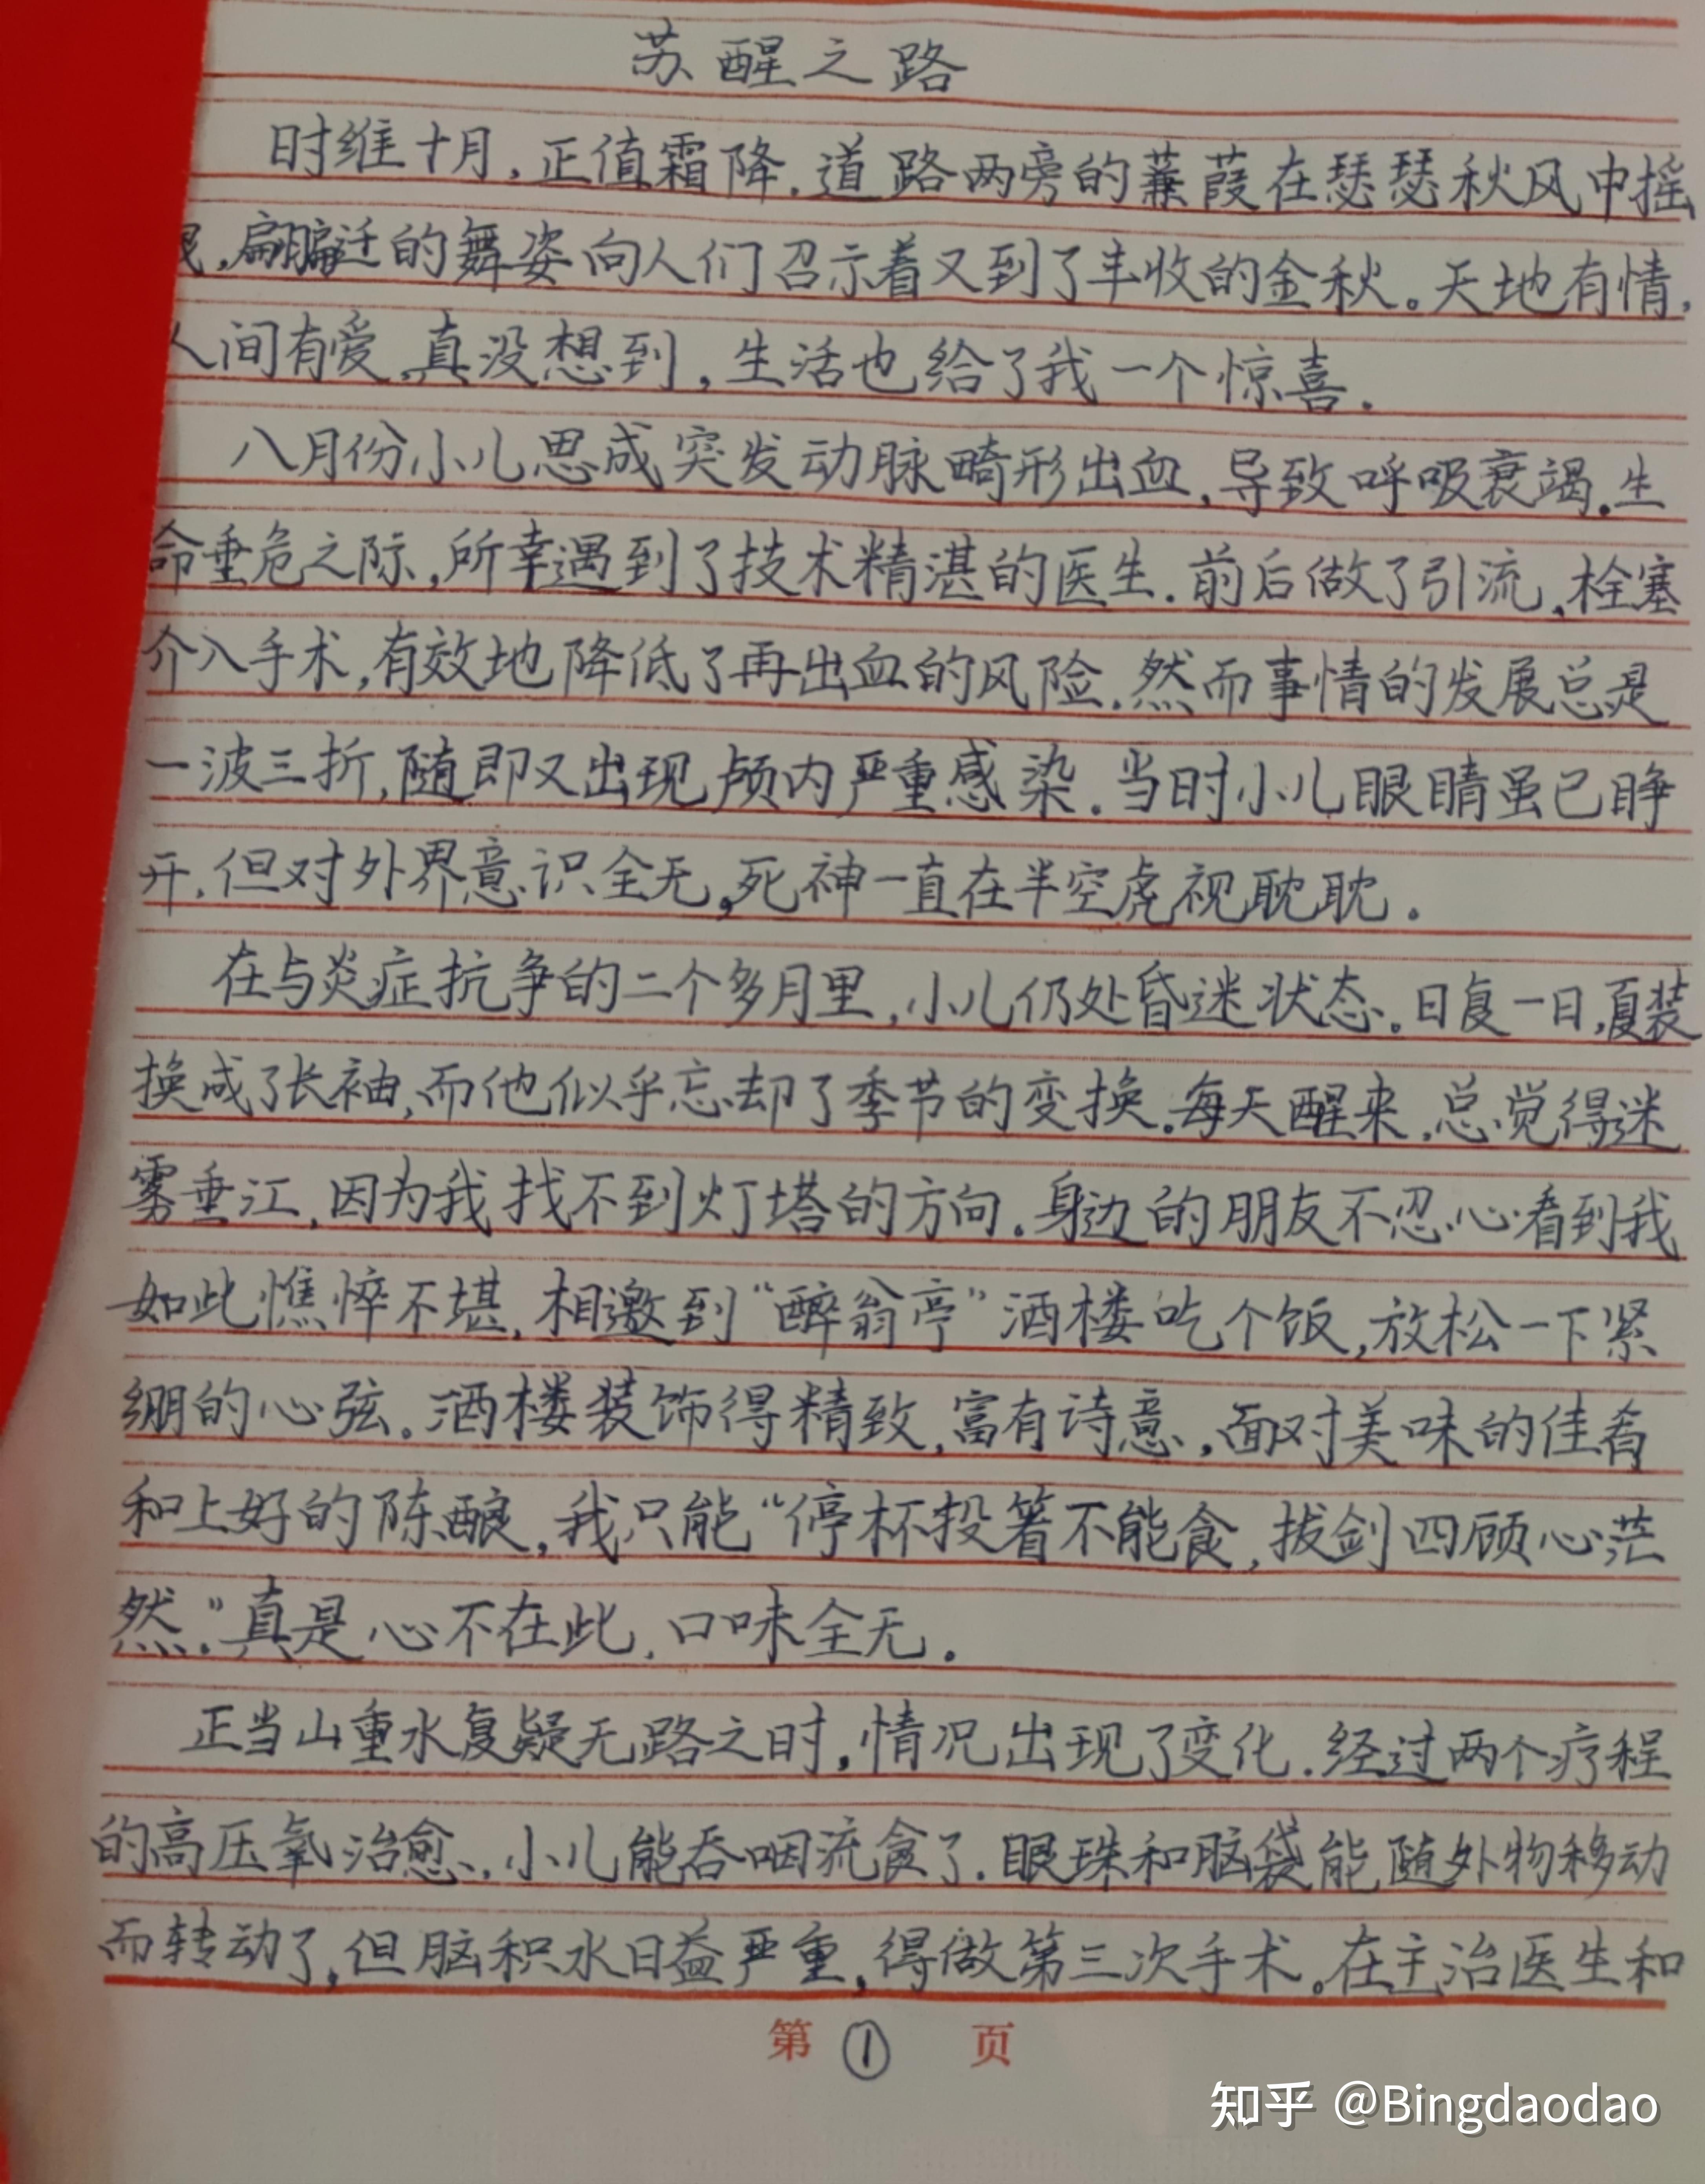 苏醒之路
时维十月,正值霜降.道路两旁的蒹葭在瑟瑟秋风中摇
,翩翩的舞姿向人们召示着又到了丰收的金秋。天地有情,
人间有爱,真没想到,生活也给了我一个惊喜.
八月份小儿思成突发动脉畸形出血,导致呼吸衰竭.生
命垂危之际,所幸遇到了技术精湛的医生.前后做了引流,栓塞
介入手术,有效地降低了再出血的风险.然而事情的发展总是
一波三折,随即又出现颅内严重感染.当时小儿眼睛虽已睁
开.但对外界意识全无,死神一直在半空虎视眈眈.
在与炎症抗争的二个多月里,小儿仍处昏迷状态.日复一日,夏装
换成了长袖,而他似乎忘却了季节的变换.每天醒来,总觉得迷
雾垂江,因为我找不到灯塔的方向.身边的朋友不忍心看到我
如此憔悴不堪,相邀到“醉翁亭”酒楼吃个饭,放松一下紧
绷的心弦。酒楼装饰得精致,富有诗意,面对美味的佳肴
和上好的陈酿,我只能“停杯投箸不能食,拔剑四顾心茫
然.”真是心不在此,口味全无.
正当山重水复疑无路之时,情况出现了变化.经过两个疗程
的高压氧治愈,小儿能吞咽流食了.眼珠和脑袋能随外物移动
而转动了,但脑积水日益严重,得做第三次手术。在主治医生和
第 ① 页
知乎 @Bingdaodao